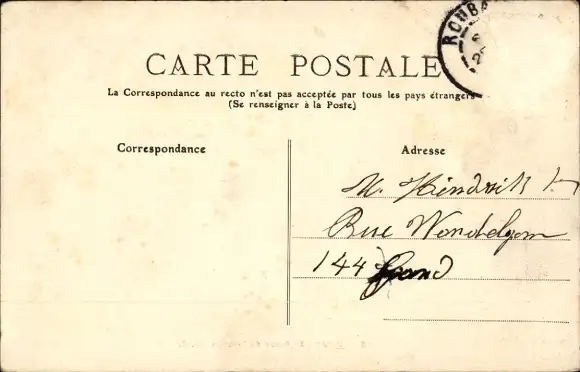 CARTE POSTALE
La Correspondance au recto n'est pas acceptée par tous les pays étrangers
(Se renseigner à la Poste)
ROUBA
Correspondance
Adresse
M. Hendrik
Rue Wondelgem
144 Gand